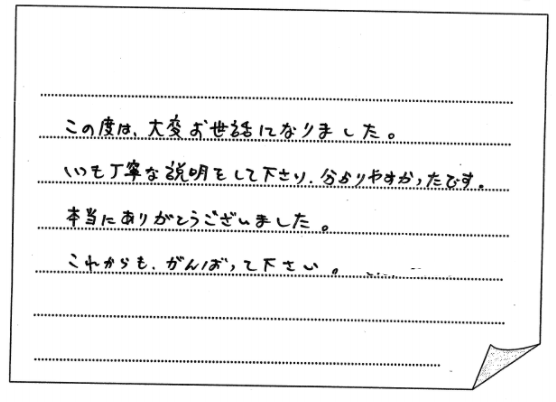 この度は、大変お世話になりました。
いつも丁寧な説明をして下さり、分かりやすかったです。
本当にありがとうございました。
これからも、がんばって下さい。